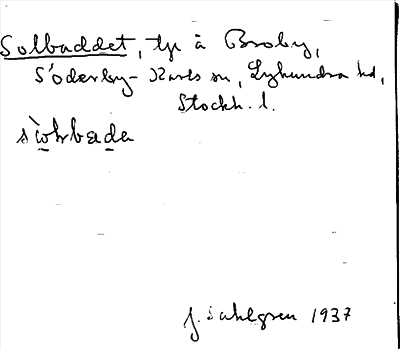 Solbaddet, tp å Broby,
Söderby-Karls sn, Lyhundra hd,
Stockh. l.
sòhrbada
J. Sahlgren 1937